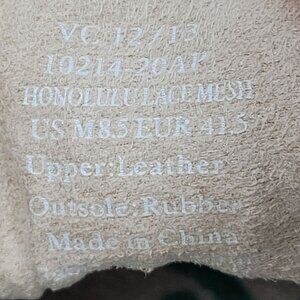 VC 12/13
10214-20AP
HONOLULU LACE MESH
US M8.5 EUR 41.5
Upper:Leather
Outsole:Rubber
Made in China